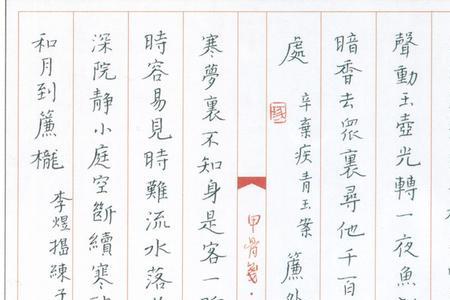 聲動玉壺光轉一夜魚
暗香去眾裏尋他千百
處 辛棄疾青玉案 簾外
甲骨箋·
寒夢裏不知身是客一
時容易見時難流水落
深院靜小庭空斷續寒
和月到簾櫳 李煜搗練子